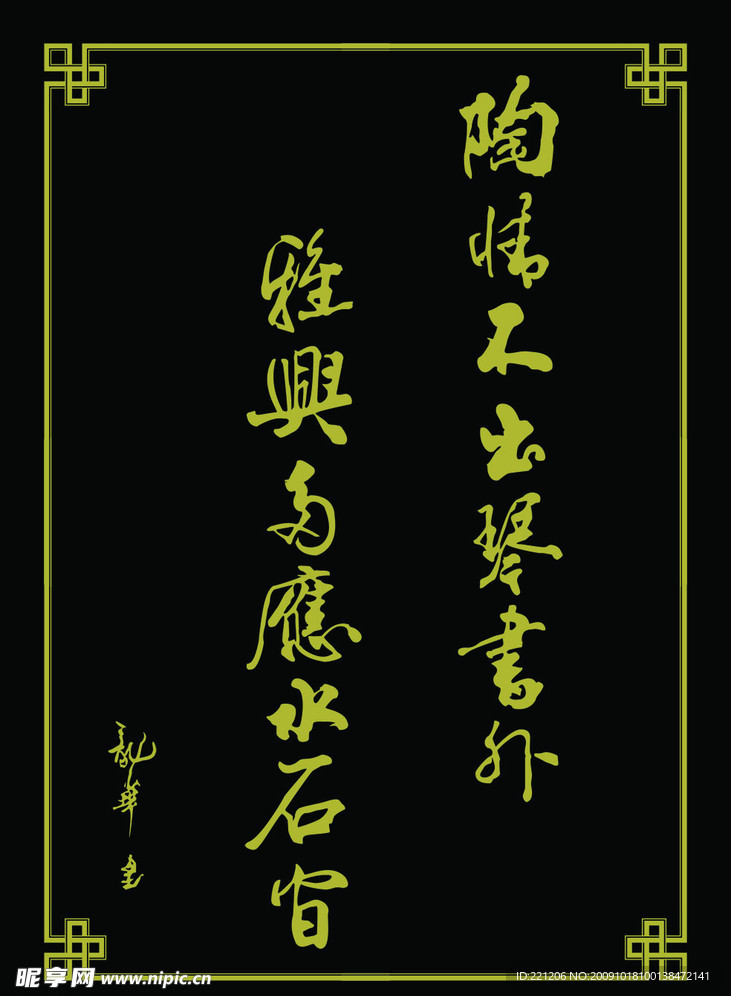 陶情不出琴書外
雅興多應水石間
龍華書
昵享网 www.nipic.cn
ID:221206 NO:20091018100138472141